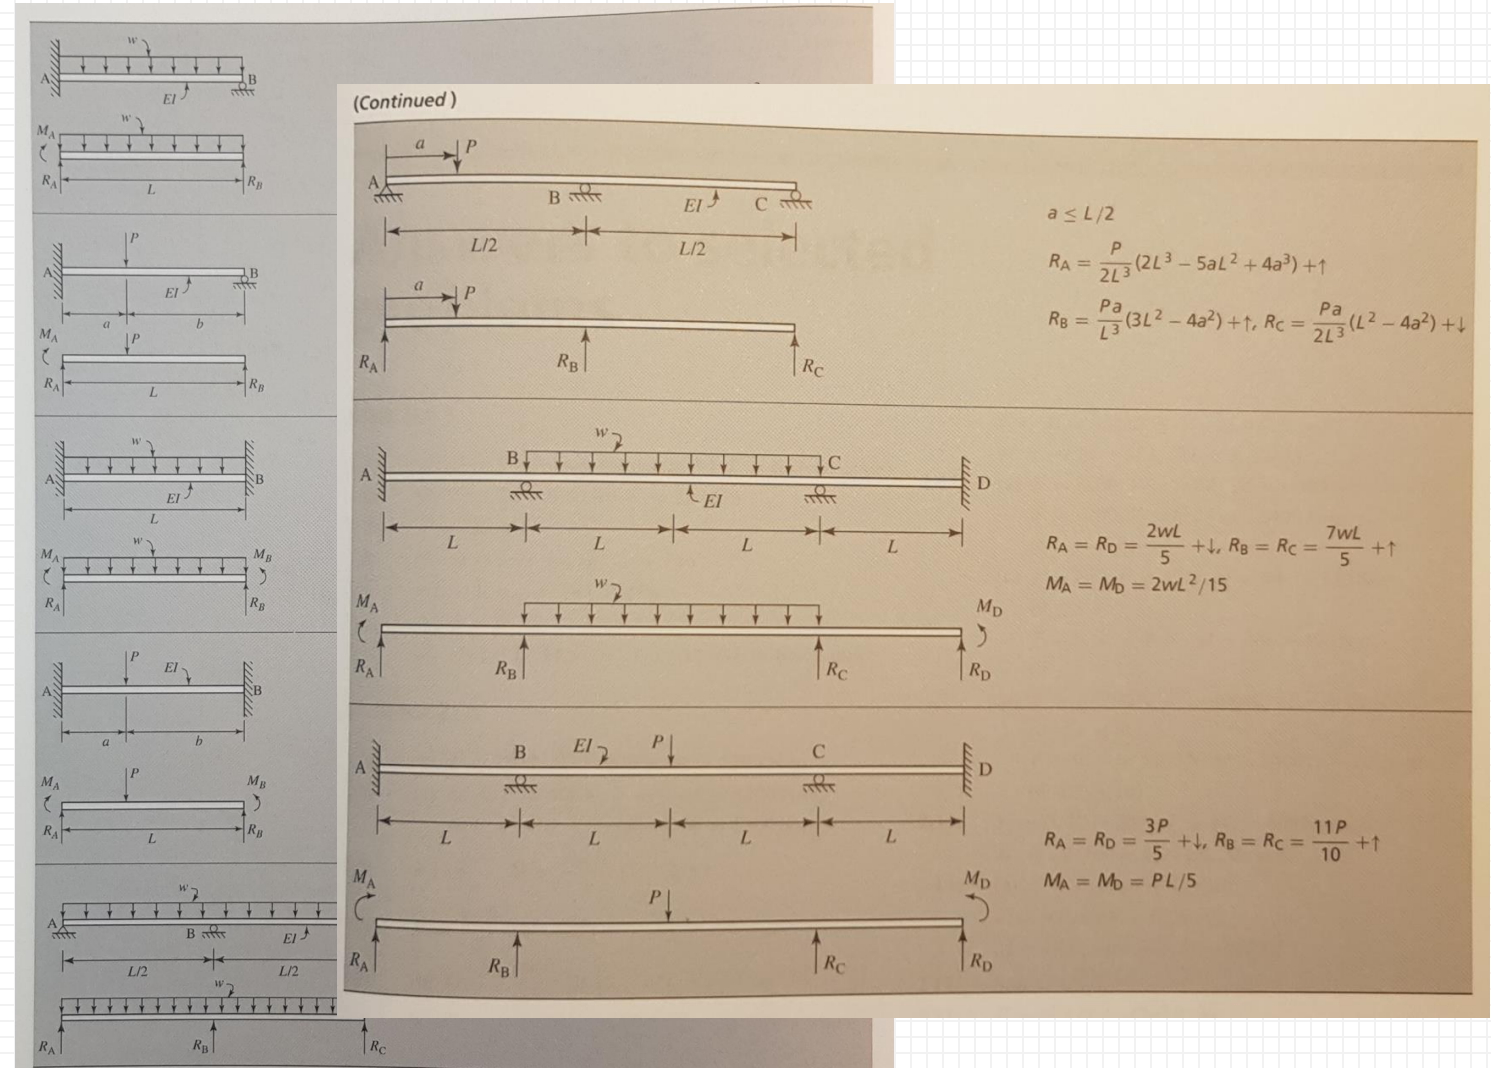 w
A
B
EI
w
M_A
R_A
L
R_B
P
A
B
EI
a
b
M_A
P
R_A
L
R_B
w
A
B
EI
L
M_A
w
M_B
R_A
R_B
P
EI
A
B
a
b
M_A
P
M_B
R_A
L
R_B
w
A
B
EI
L/2
L/2
w
R_A
R_B
R_C
(Continued)
a
P
A
B
EI
C
L/2
L/2
a
P
R_A
R_B
R_C
a ≤ L/2
R_A = P/2L³ (2L³ − 5aL² + 4a³) +↑
R_B = Pa/L³ (3L² − 4a²) +↑, R_C = Pa/2L³ (L² − 4a²) +↓
w
A
B
C
D
EI
L
L
L
L
M_A
w
M_D
R_A
R_B
R_C
R_D
R_A = R_D = 2wL/5 +↓, R_B = R_C = 7wL/5 +↑
M_A = M_D = 2wL²/15
A
B
EI
P
C
D
L
L
L
L
M_A
P
M_D
R_A
R_B
R_C
R_D
R_A = R_D = 3P/5 +↓, R_B = R_C = 11P/10 +↑
M_A = M_D = PL/5